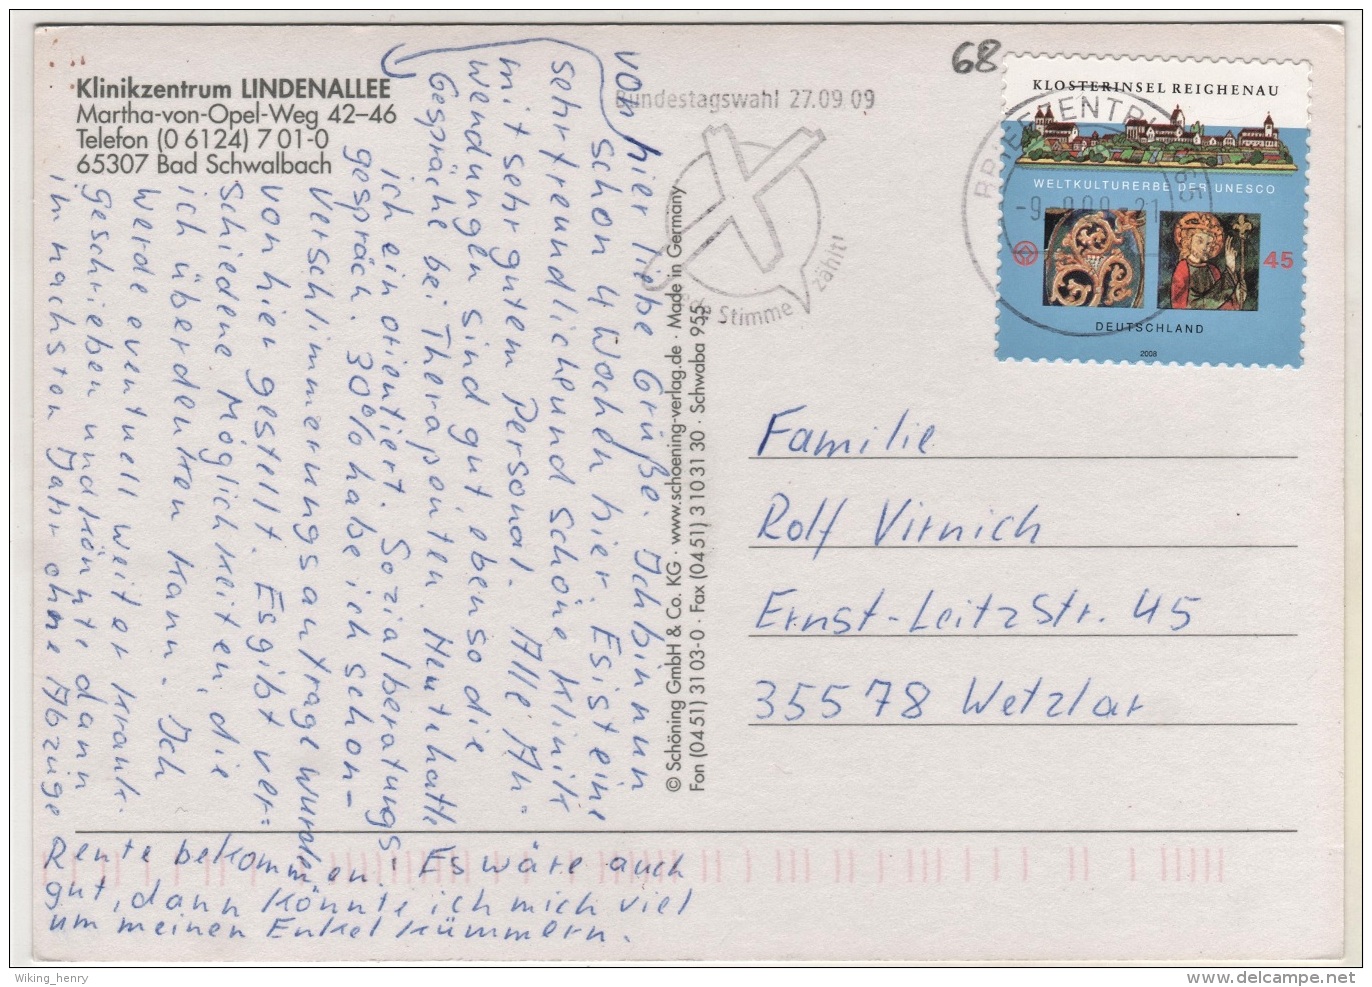 Klinikzentrum LINDENALLEE
Martha-von-Opel-Weg 42–46
Telefon (0 6124) 7 01-0
65307 Bad Schwalbach
von hier liebe Grüße. Ich bin nun
schon 4 Wochen hier. Es ist eine
sehr freundliche und schöne Klinik
mit sehr gutem Personal. Alle An-
wendungen sind gut, ebenso die
Gespräche bei Therapeuten. Heut hatte
ich ein orientiert. Sozialberatungs-
gespräch. 30% habe ich schon-
Verschlimmerungsantrage wurden
von hier gestellt. Es gibt ver=
schiedene Möglichkeiten, die
ich überdenken kann. Ich
werde eventuell weiter krank-
geschrieben und könnte dann
im nächsten Jahr ohne Abzüge
Rente bekommen. Es wäre auch
gut, dann könnte ich mich viel
um meinen Enkel kümmern.
© Schöning GmbH & Co. KG · www.schoening-verlag.de · Made in Germany
Fon (04 51) 31 03-0 · Fax (04 51) 3 10 31 30 · Schwaba 955
Bundestagswahl 27.09 09
Stimme zählt!
68
KLOSTERINSEL REICHENAU
WELTKULTURERBE DER UNESCO
45
DEUTSCHLAND
2008
BRIEFZENTRUM
65
Familie
Rolf Virnich
Ernst-Leitz Str. 45
35578 Wetzlar
Wiking_henry
www.delcampe.net